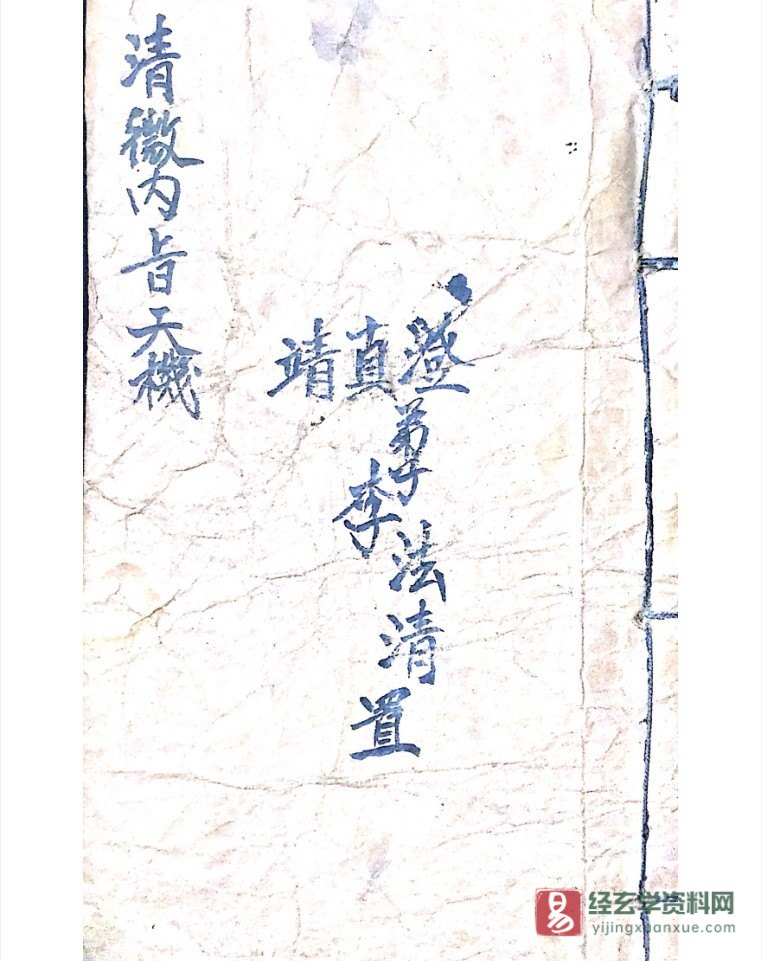 清微內旨天機
靖真
李法清置
易 经玄学资料网
yijingxuanxue.com